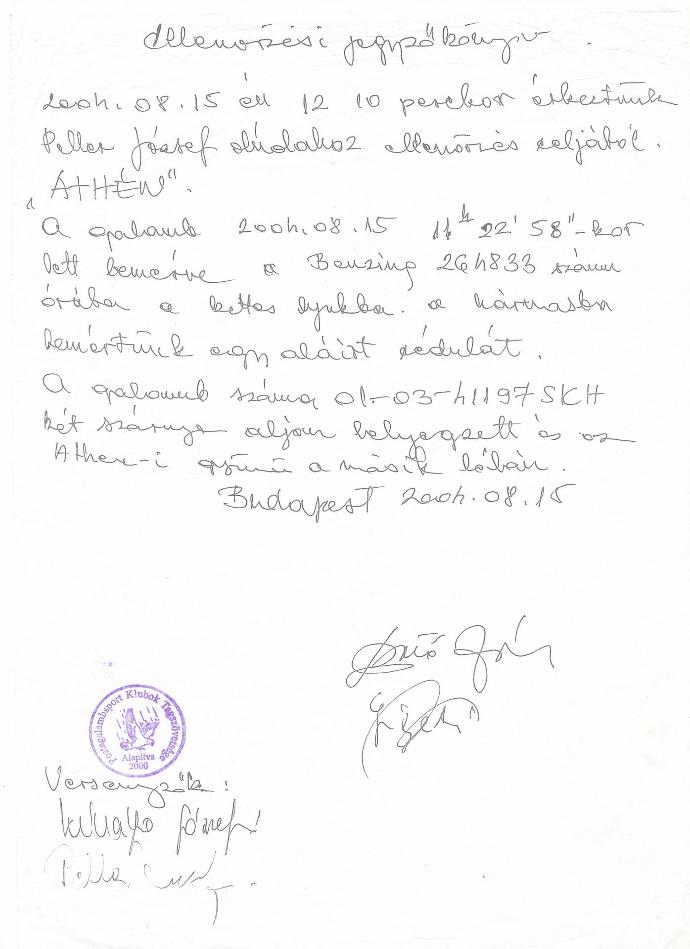 Ellenőrzési jegyzőkönyv.
2004.08.15 én 12 10 perckor érkeztünk
Peller József dúdahoz ellenőrzés céljából.
„ATHÉN".
A galamb 2004.08.15 11h 22' 58"-kor
lett bemérve a Benzing 264833 számú
órába a kettes lyukba. a hármasba
bemértünk egy aláírt cédulát.
A galamb száma 01-03-41197 SKH
két szárnya aljon bélyegzett és az
Athen-i gyűrű a másik lábán.
Budapest 2004.08.15
Postagalambsport Klubok Tagszövetsége
Alapítva
2000
Versenyzők:
József